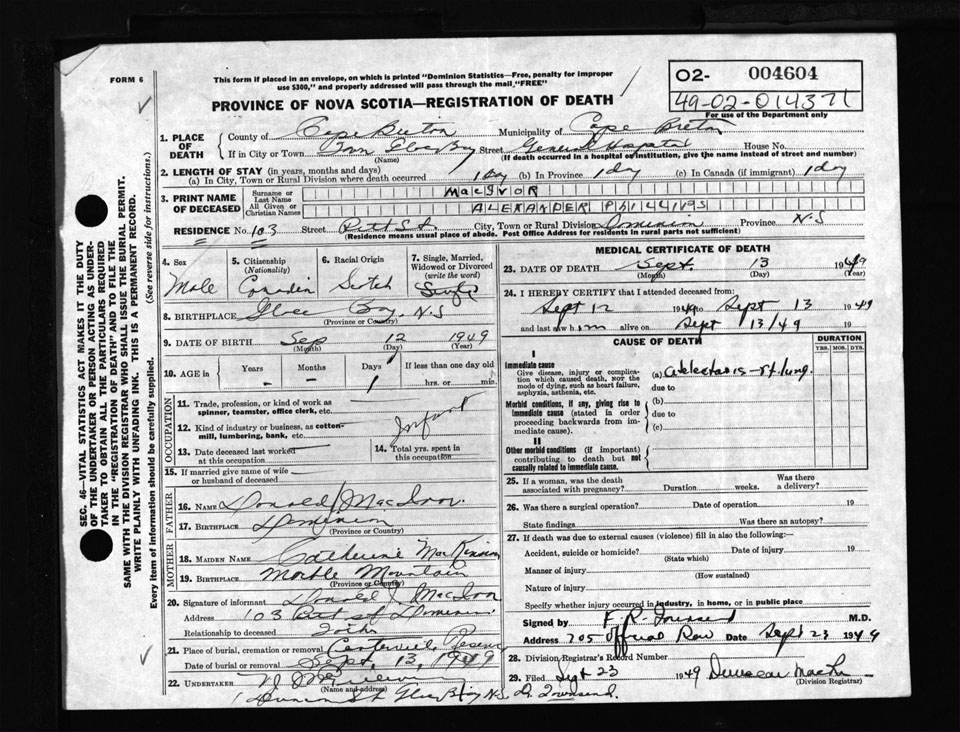 FORM 6
This form if placed in an envelope, on which is printed "Dominion Statistics—Free, penalty for improper
use $300," and properly addressed will pass through the mail, "FREE"
PROVINCE OF NOVA SCOTIA—REGISTRATION OF DEATH
O2- 004604
49-02-014371
For use of the Department only
1. PLACE OF DEATH
County of Cape Breton Municipality of Cape Breton
If in City or Town Town Glace Bay Street General Hospital House No.
(Name) (If death occurred in a hospital or institution, give the name instead of street and number)
2. LENGTH OF STAY (in years, months and days)
(a) In City, Town or Rural Division where death occurred 1 Day (b) In Province 1 day (c) In Canada (if immigrant) 1 day
3. PRINT NAME OF DECEASED
Surname or Last Name MacIvor
All Given or Christian Names ALEXANDER
RESIDENCE No. 103 Street Pitt St. City, Town or Rural Division Dominion Province N.S
(Residence means usual place of abode. Post Office Address for residents in rural parts not sufficient)
4. Sex Male
5. Citizenship (Nationality) Canadian
6. Racial Origin Scotch
7. Single, Married, Widowed or Divorced (write the word) Single
8. BIRTHPLACE Glace Bay, N.S
(Province or Country)
9. DATE OF BIRTH Sep 12 1949
(Month) (Day) (Year)
10. AGE in Years - Months - Days 1 If less than one day old
hrs. or min.
OCCUPATION
11. Trade, profession, or kind of work as
spinner, teamster, office clerk, etc.
12. Kind of industry or business, as cotton-
mill, lumbering, bank, etc.
Infant
13. Date deceased last worked
at this occupation
14. Total yrs. spent in
this occupation
15. If married give name of wife
or husband of deceased
FATHER
16. Name Donald J MacIvor.
17. Birthplace Dominion
(Province or Country)
MOTHER
18. Maiden Name Catherine MacKinnon
19. Birthplace Marble Mountain
(Province or Country)
20. Signature of informant Donald J. MacIvor
Address 103 Pitt st Dominion
Relationship to deceased Father
21. Place of burial, cremation or removal Centerville, Reserve
Date of burial or removal Sept. 13, 1949
22. UNDERTAKER
(Name and address)
Glace Bay N.S.
MEDICAL CERTIFICATE OF DEATH
23. DATE OF DEATH Sept. 13 1949
(Month) (Day) (Year)
24. I HEREBY CERTIFY that I attended deceased from:
Sept 12 1949 to Sept 13 1949
and last saw him alive on Sept 13/49 19
CAUSE OF DEATH
DURATION
YRS. MOS. DYS.
I
Immediate cause
Give disease, injury or complica-
tion which caused death, NOT the
mode of dying, such as heart failure,
asphyxia, asthenia, etc.
(a) Atelectasis - rt lung.
due to
Morbid conditions, if any, giving rise to
immediate cause (stated in order
proceeding backwards from im-
mediate cause).
(b)
due to
(c)
II
Other morbid conditions (if important)
contributing to death but not
causally related to immediate cause.
25. If a woman, was the death
associated with pregnancy? Duration weeks. Was there
a delivery?
26. Was there a surgical operation? Date of operation 19
State findings Was there an autopsy?
27. If death was due to external causes (violence) fill in also the following:—
Accident, suicide or homicide? Date of injury 19
(State which)
Manner of injury
(How sustained)
Nature of injury
Specify whether injury occurred in industry, in home, or in public place
Signed by M.D.
Address 705 Official Row Date Sept 23 1949
28. Division Registrar's Record Number
29. Filed Sept 23 1949 Duncan
(Division Registrar)
Townsend.
SEC. 46—VITAL STATISTICS ACT MAKES IT THE DUTY
OF THE UNDERTAKER OR PERSON ACTING AS UNDER-
TAKER TO OBTAIN ALL THE PARTICULARS REQUIRED
IN THE "REGISTRATION OF DEATH" AND TO FILE THE
SAME WITH THE DIVISION REGISTRAR WHO SHALL ISSUE THE BURIAL PERMIT.
WRITE PLAINLY WITH UNFADING INK. THIS IS A PERMANENT RECORD.
Every item of information should be carefully supplied. (See reverse side for instructions.)